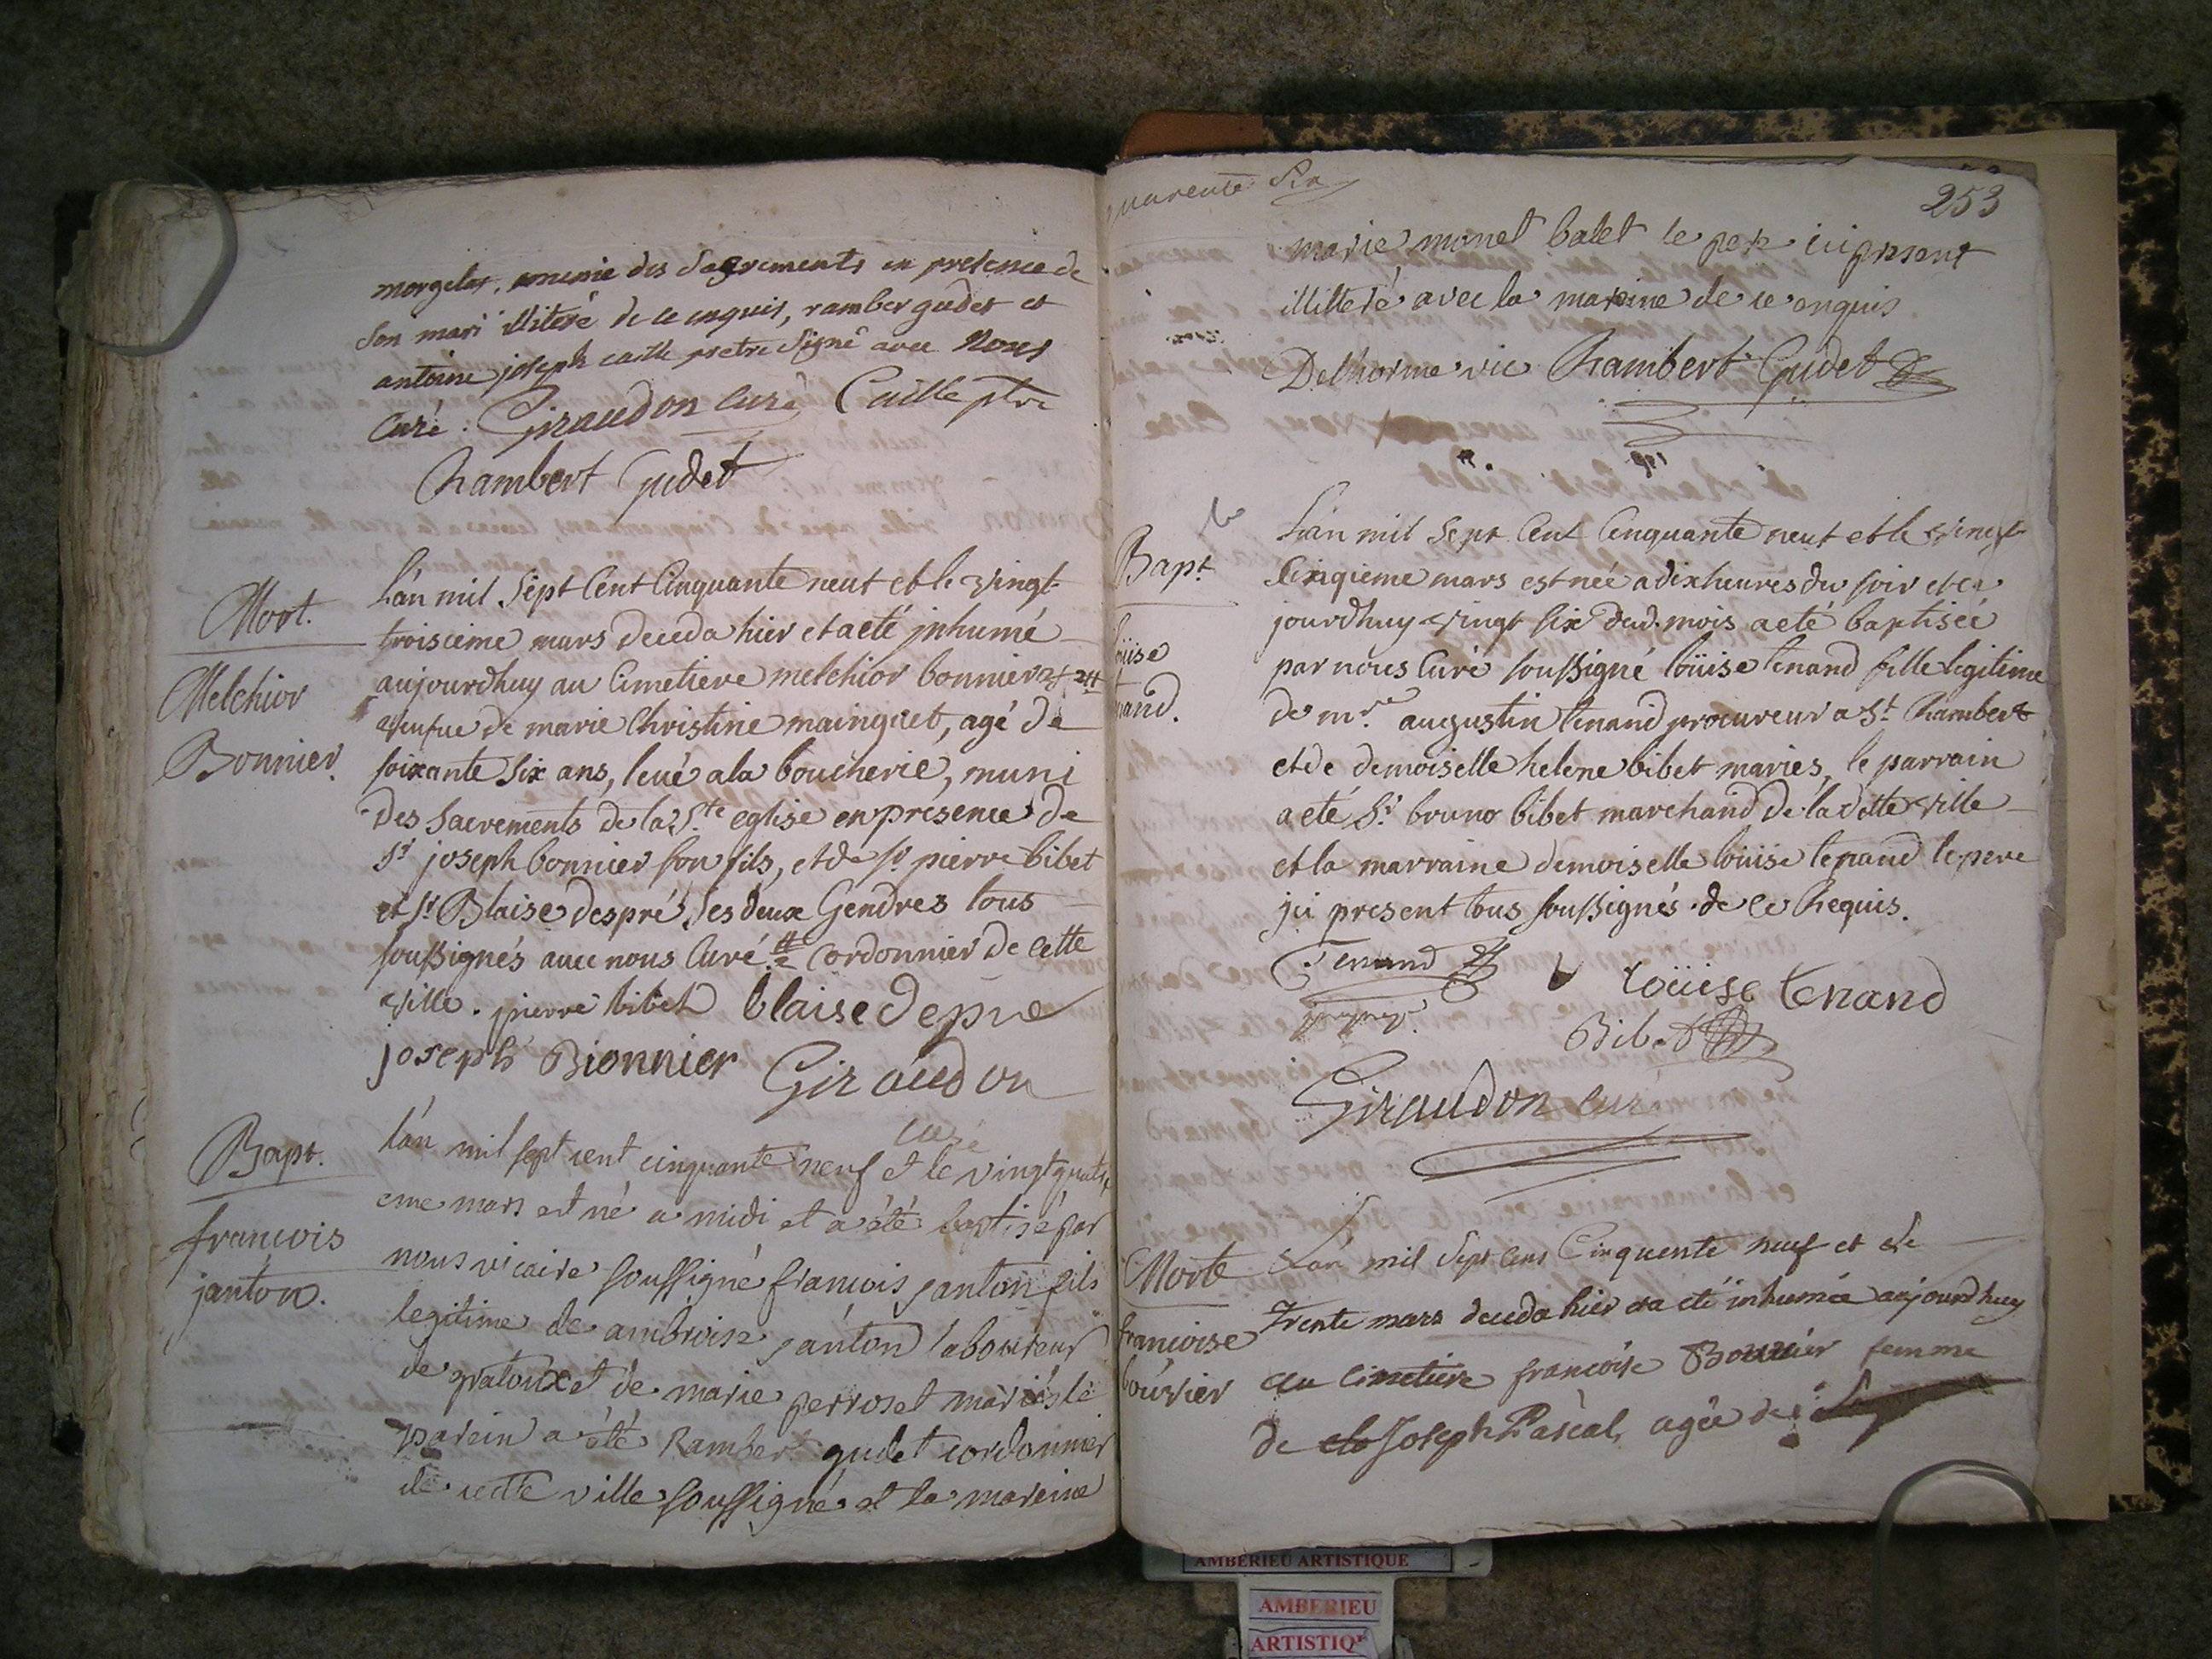 morgelas, munie des Sagrements en presence de
son mari illiteré de ce enquis, ramber gudet et
antoine joseph caille pretre Signé avec Nous
Curé : Giraudon Curé Caille ptre
Rambert Gudet
Mort.
Melchior
Bonnier.
L'an mil Sept Cent Cinquante neuf et le vingt
troisieme mars deceda hier et a eté jnhumé
aujourdhuy au Cimetiere melchior bonnier
veufue de marie Christine mainguet, agé de
soixante Six ans, leué a la boucherie, muni
des Sacrements de la Ste eglise en présence de
Sr joseph bonnier son fils, et de Sr pierre bibet
et Sr Blaise despré Ses deux Gendres tous
soussignés auec nous Curé # Cordonnier de Cette
ville. pierre bibet blaise depre
joseph Bionnier Giraudon
Curé
Bapt.
francois
janton.
l'an mil sept cent cinquante neuf et le vingt quatri
eme mars est né a midi et a été baptisé par
nous vicaire soussigné francois janton fils
legitime de ambroise janton laboureur
de gratoux et de marie perroset mariés le
parein a été Rambert gudet cordonnier
de cette ville soussigné et la mareine
quarente Six
253
marie monet balet le pere ici present
illitteré avec la mareine de ce enquis
Delhorme vic Rambert Gudet
Bapt
loüise
tenand.
L'an mil Sept Cent Cinquante neuf et le vingt
Cinqieme mars est née a dix heures du soir et ce
jourdhuy vingt Six dud. mois a eté baptisée
par nous Curé soussigné loüise tenand fille legitime
de mre augustin tenand procureur a St Rambert
et de demoiselle helene bibet mariés, le parrain
a eté Sr bruno bibet marchand de la ditte ville
et la marraine demoiselle loüise tenand le pere
jci present tous soussignés de ce Requis.
Tenand loüise tenand
Bibet
Giraudon curé
Morte
francoise
bouvier
L'an mil Sept cens Cinquente neuf et le
Trente mars deceda hier et a eté inhumée aujourdhuy
au Cimetiere francoise Bouvier femme
de Joseph Pascal, agée de
AMBERIEU ARTISTIQUE
AMBERIEU
ARTISTIQ